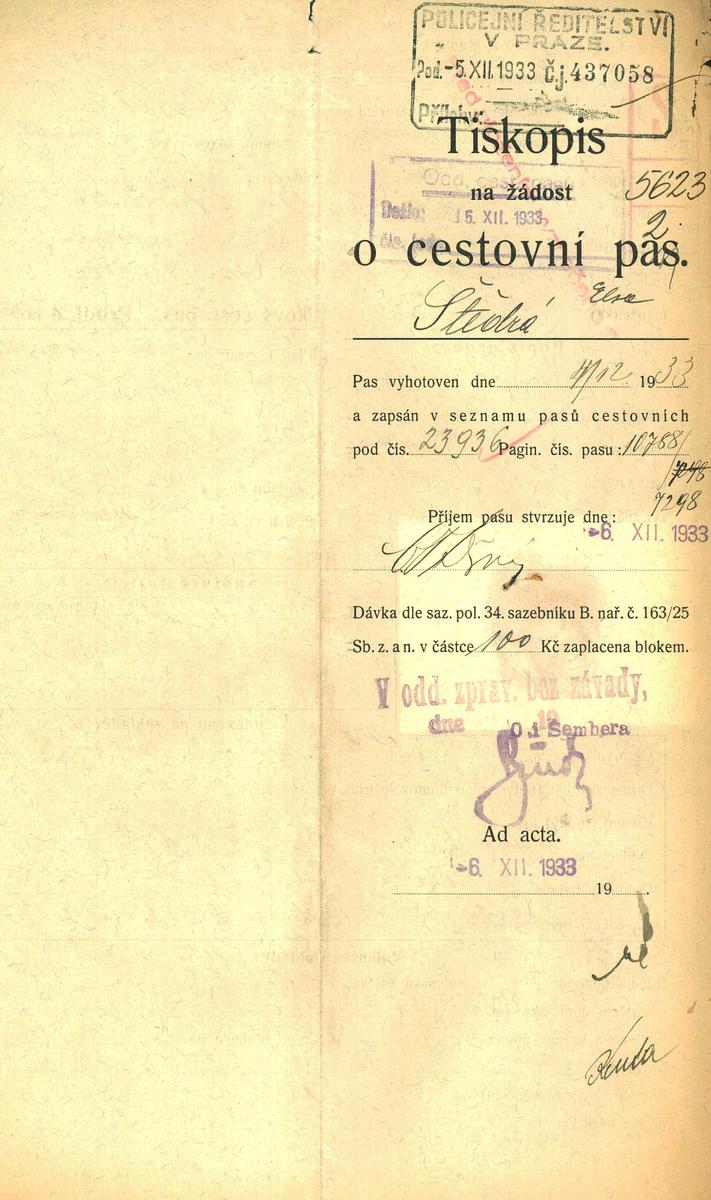 POLICEJNÍ ŘEDITELSTVÍ
V PRAZE.
Pod. -5.XII.1933 č.j. 437058
Přílohy:
Tiskopis
Odd. cest. pasů
na žádost
5623
Došlo: 5. XII. 1933
2
o cestovní pas.
Štědrá Elsa
Pas vyhotoven dne 4/12. 1933
a zapsán v seznamu pasů cestovních
pod čís. 23936 Pagin. čís. pasu: 10788/
7298
Příjem pasu stvrzuje dne:
-6. XII. 1933
Dávka dle saz. pol. 34. sazebníku B. nař. č. 163/25
Sb. z. a n. v částce 100 Kč zaplacena blokem.
V odd. zprav. bez závady,
dne 19
O. i Šembera
Ad acta.
-6. XII. 1933
19 .